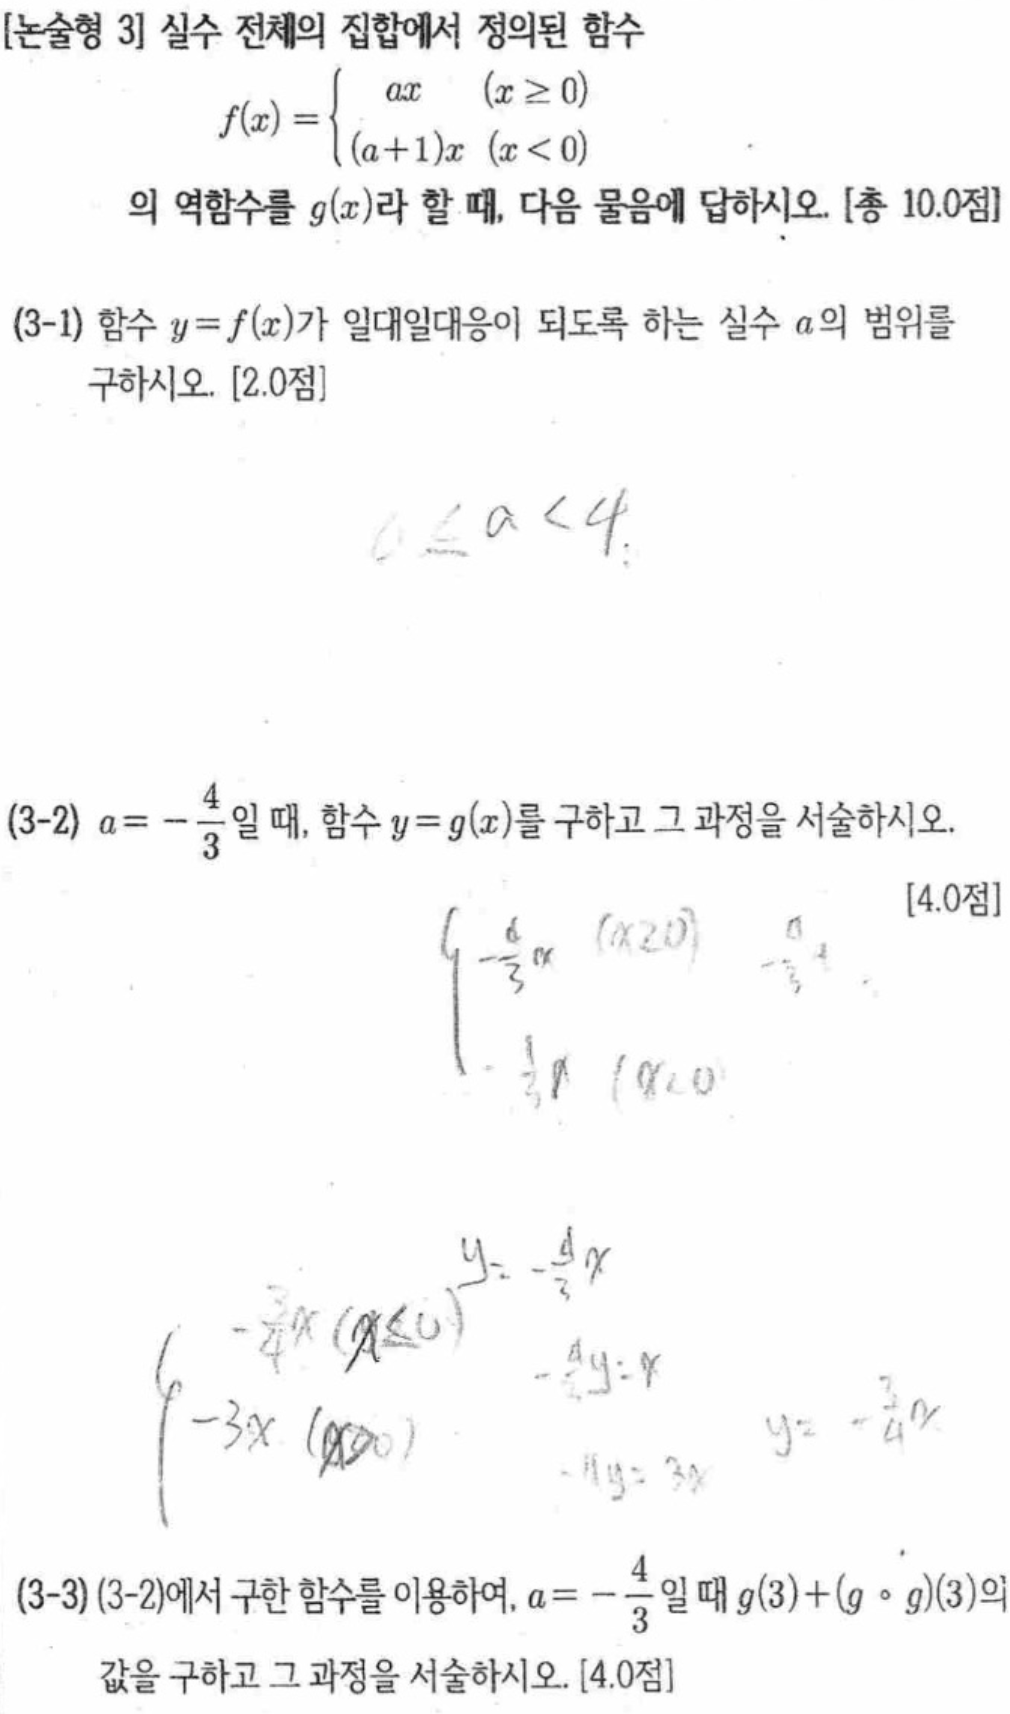 [논술형 3] 실수 전체의 집합에서 정의된 함수
f(x) = { ax (x ≥ 0)
(a+1)x (x < 0)
의 역함수를 g(x)라 할 때, 다음 물음에 답하시오. [총 10.0점]
(3-1) 함수 y = f(x)가 일대일대응이 되도록 하는 실수 a의 범위를
구하시오. [2.0점]
≤ a < 4
(3-2) a = -4/3 일 때, 함수 y = g(x)를 구하고 그 과정을 서술하시오.
[4.0점]
{ -4/3 x (x ≥ 0)
-1/3 x (x < 0
y = -4/3 x
{ -3/4 x (x ≤ 0)
y = x
-3x
y = -3/4 x
-4y = 3x
(3-3) (3-2)에서 구한 함수를 이용하여, a = -4/3 일 때 g(3)+(g ∘ g)(3)의
값을 구하고 그 과정을 서술하시오. [4.0점]